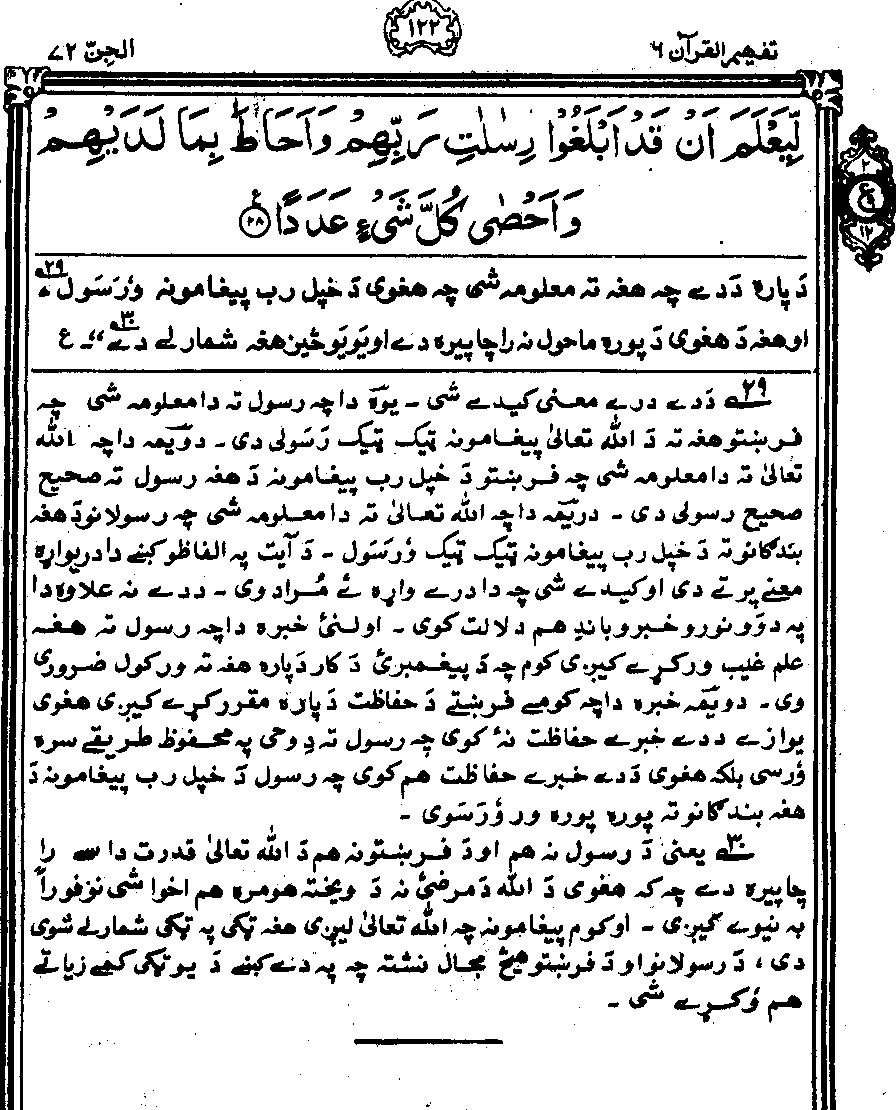 تفہیم القرآن ۶
۱۲۲
الجنّ ۷۲
لِّيَعْلَمَ اَنْ قَدْ اَبْلَغُوْا رِسٰلٰتِ رَبِّهِمْ وَاَحَاطَ بِمَا لَدَيْهِمْ
وَاَحْصٰى كُلَّ شَىْءٍ عَدَدًا ۲۸ ع
دَپاره دَدے چہ هغہ تہ معلومہ شی چہ هغوی دَ خپل رب پیغامونہ وُرَسَول ۲۹،
اوهغہ دَ هغوی دَ پوره ماحول نہ راچاپیره دے اویَویَوڅیزهغہ شمارلے دے ۳۰،،۔ ع
۲۹ دَدے درے معنی کیدے شی ۔ یوَّه داچہ رسول تہ دامعلومہ شی چہ
فرښتوهغہ تہ دَ الله تعالیٰ پیغامونہ ټیک ټیک رَسَولی دی۔ دویَمہ داچہ الله
تعالیٰ تہ دامعلومہ شی چہ فرښتو دَ خپل رب پیغامونہ دَ هغہ رسول تہ صحیح
صحیح رسولی دی ۔ دریَمہ داچہ الله تعالیٰ تہ دامعلومہ شی چہ رسولانودَ هغہ
بندګانوتہ دَ خپل رب پیغامونہ ټیک ټیک وُرَسَول ۔ دَ آیت پہ الفاظوکښے دادریواړه
معنے پرتے دی اوکیدے شی چہ دادرے واړه ئے مُراد وی ۔ ددے نہ علاوه دا
پہ دوَونوروخبروباند هم دلالت کوی ۔ اولنئ خبره داچہ رسول تہ هغہ
علم غیب ورکړے کیږی کوم چہ دَ پیغمبرئ دَ کار دَپاره هغہ تہ ورکول ضروری
وی ۔ دویَمہ خبره داچہ کومے فرښتے دَ حفاظت دَپاره مقررکړے کیږی هغوی
یوازے ددے خبرے حفاظت نۂ کوی چہ رسول تہ دِ وحی پہ محفوظ طریقے سره
وُرسی بلکہ هغوی دَدے خبرے حفاظت هم کوی چہ رسول دَ خپل رب پیغامونہ دَ
هغہ بندګانوتہ پوره پوره ور وُرَسَوی ۔
۳۰ یعنی دَ رسول نہ هم اودَ فرښتونہ هم دَ الله تعالیٰ قدرت داسے را
چاپیره دے چہ کہ هغوی دَ الله دَمرضئ نہ دَ ویختہ هومره هم اخوا شی نوفوراً
بہ نیوے کیږی ۔ اوکوم پیغامونہ چہ الله تعالیٰ لیږی هغہ ټکی پہ ټکی شمارلے شوی
دی، دَ رسولانواودَ فرښتوهیڅ مجال نشتہ چہ پہ دے کښے دَ یوټکی کمے زیاتے
هم وُکړے شی ۔